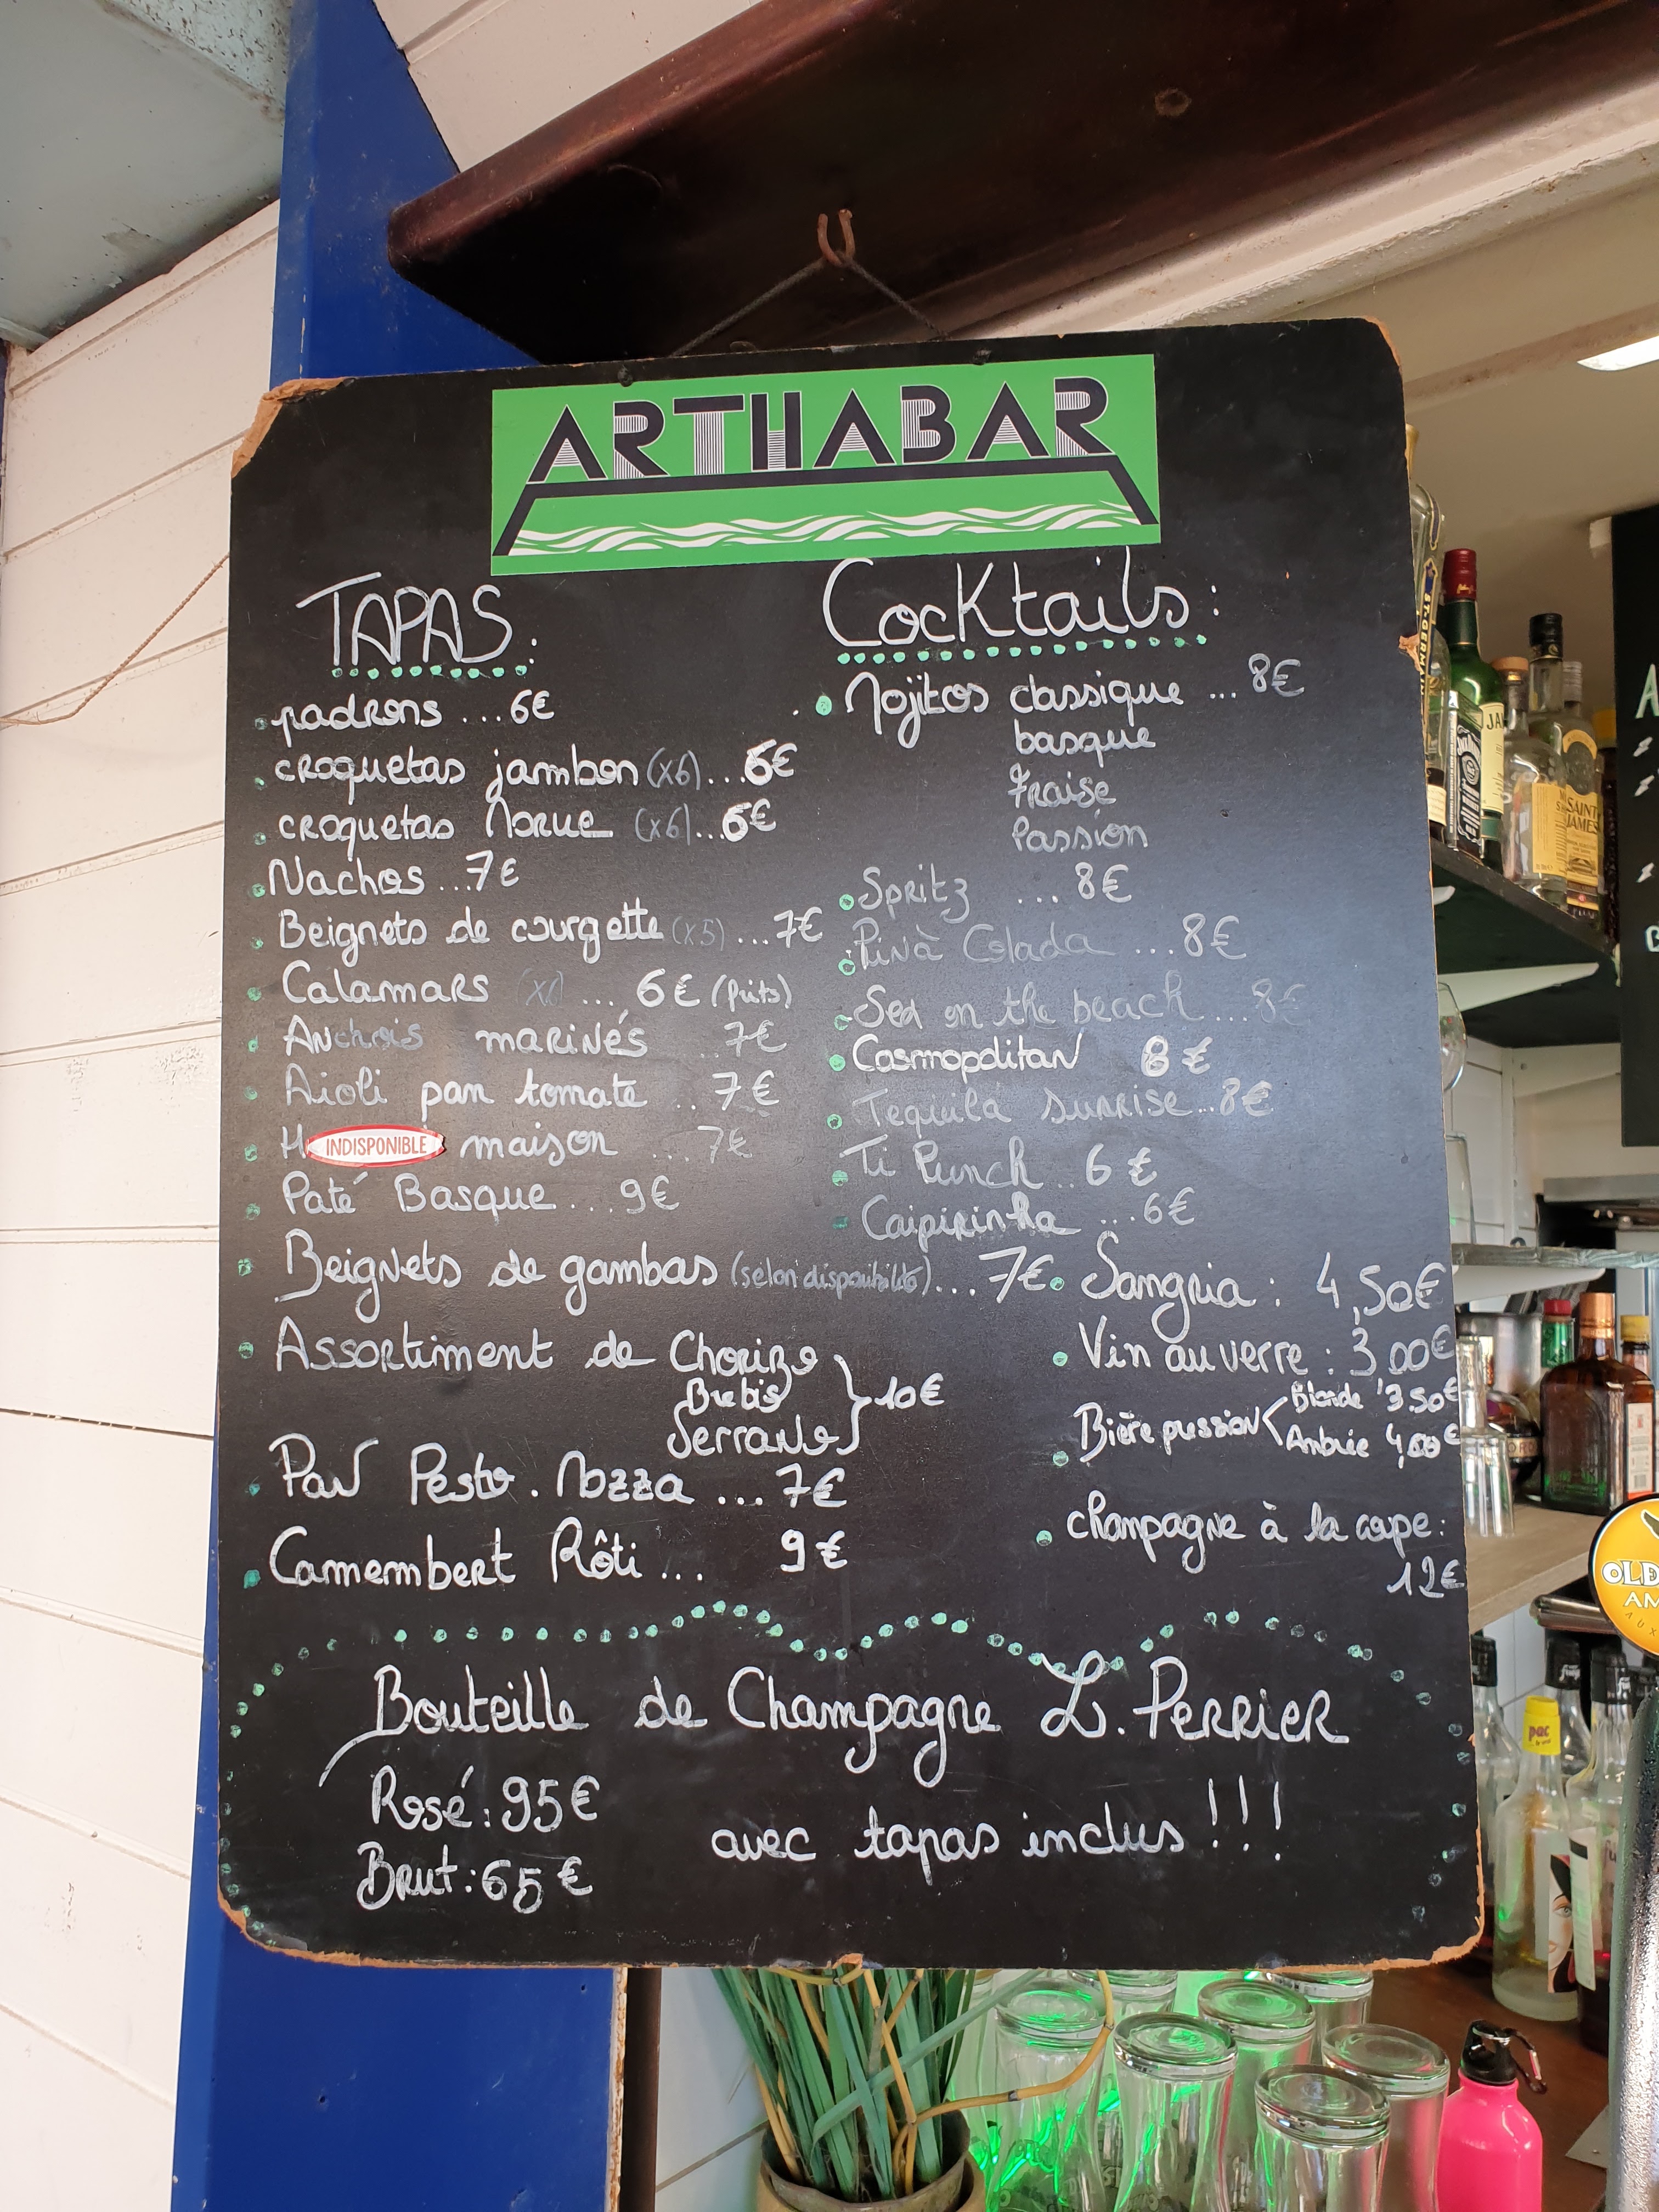 ARTHABAR
TAPAS:
padrons ... 6€
croquetas jambon (x6)... 6€
croquetas Morue (x6)... 6€
Nachos ... 7€
Beignets de courgette (x5) ... 7€
Calamars ... 6€ (frits)
Anchois marinés .. 7€
Aioli pan tomate .. 7€
H INDISPONIBLE maison ... 7€
Paté Basque ... 9€
Beignets de gambas (selon disponibilité)... 7€
Assortiment de Chorizo
Brebis
Serrano
10€
Pan Pesto. Mozza ... 7€
Camembert Rôti ... 9€
Cocktails:
Mojitos classique ... 8€
basque
fraise
Passion
Spritz ... 8€
Pinà Colada ... 8€
Sex on the beach ... 8€
Cosmopolitan 8€
Tequila sunrise .. 8€
Ti Punch .. 6€
Caipirinha ... 6€
Sangria : 4,50€
Vin au verre : 3,00€
Bière pression
Blonde 3.50€
Ambrée 4,00€
champagne à la coupe:
12€
Bouteille de Champagne L. PERRIER
Rosé: 95€
Brut: 65€
avec tapas inclus !!!
ST-GERMAIN
JA
SAINT
JAMES
OLD
AM
pac